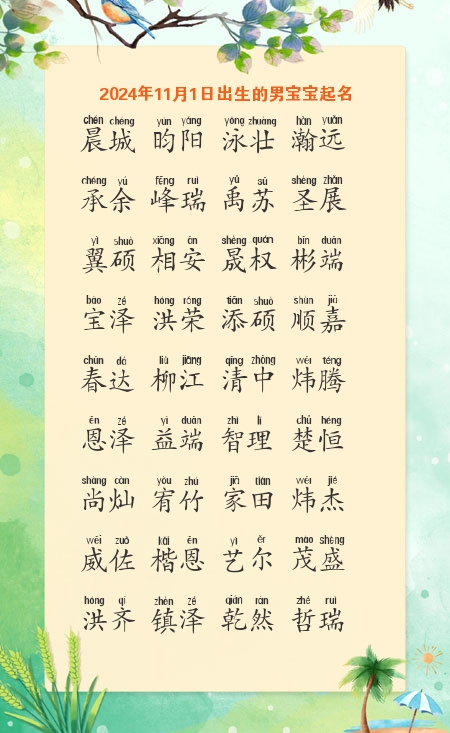 2024年11月1日出生的男宝宝起名
chén chéng yún yáng yǒng zhuàng hàn yuǎn
晨城 昀阳 泳壮 瀚远
chéng yú fēng ruì yǔ sū shèng zhǎn
承余 峰瑞 禹苏 圣展
yì shuò xiāng ān shèng quán bīn duān
翼硕 相安 晟权 彬端
bǎo zé hóng róng tiān shuò shùn jiā
宝泽 洪荣 添硕 顺嘉
chūn dá liǔ jiāng qīng zhōng wěi téng
春达 柳江 清中 炜腾
ēn zé yì duān zhì lǐ chǔ héng
恩泽 益端 智理 楚恒
shàng càn yòu zhú jiā tián wěi jié
尚灿 宥竹 家田 炜杰
wēi zuǒ kǎi ēn yì ěr mào shèng
威佐 楷恩 艺尔 茂盛
hóng qí zhèn zé qián rán zhé ruì
洪齐 镇泽 乾然 哲瑞